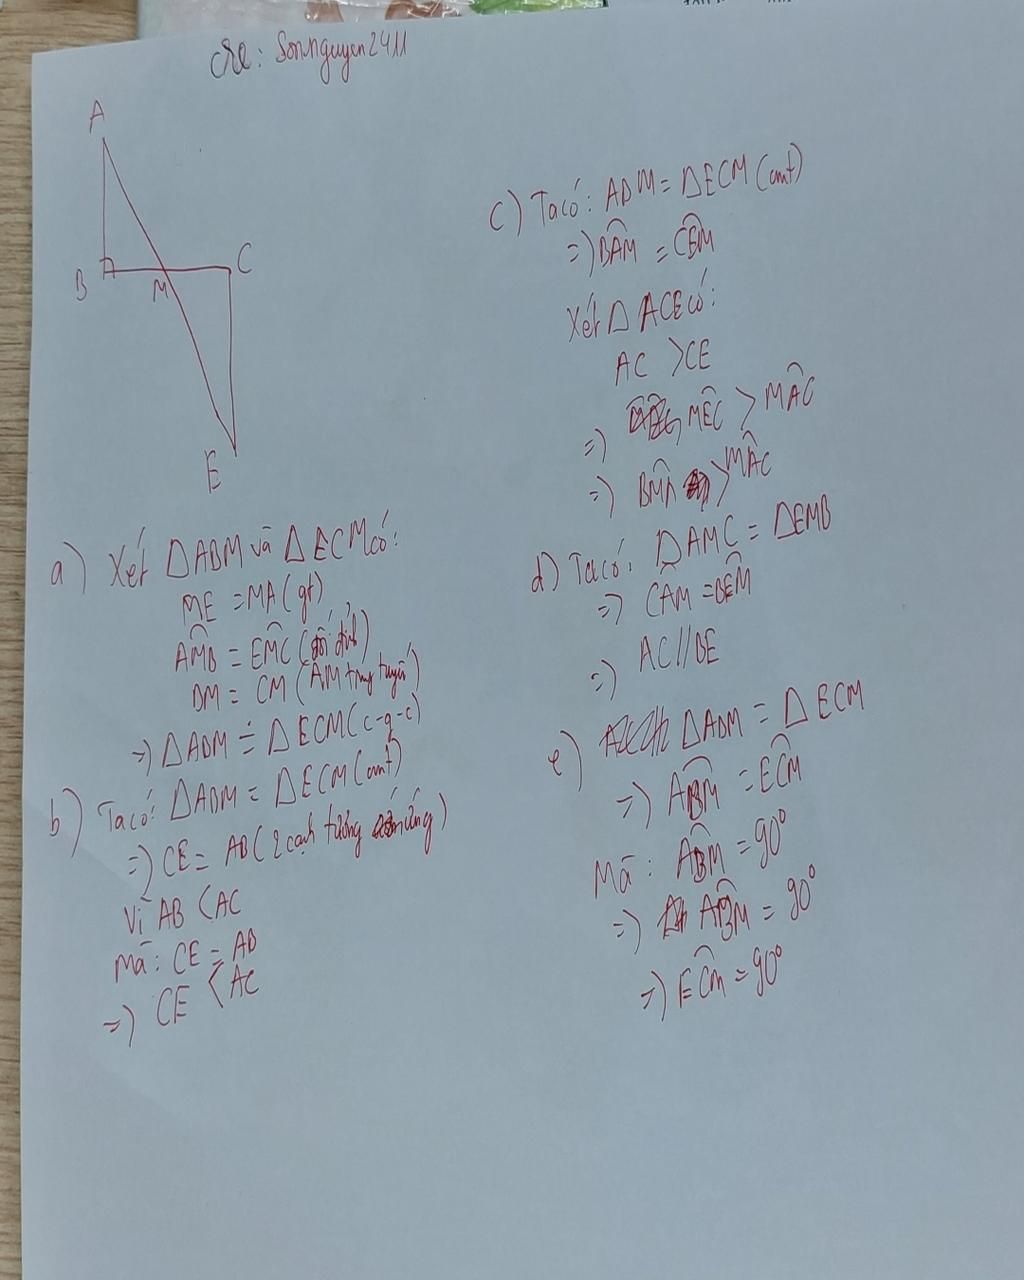 cre: Sonnguyen2411
A
B
M
C
E
a) Xét ΔABM và ΔECM có:
ME = MA (gt)
AMB = EMC (đối đỉnh)
BM = CM (AM trung tuyến)
=) ΔABM = ΔECM (c-g-c)
b) Ta có: ΔABM = ΔECM (cmt)
=) CE = AB (2 cạnh tương ứng)
Vì AB < AC
Mà: CE = AB
=) CE < AC
c) Ta có: ABM = ΔECM (cmt)
=) BAM = CEM
Xét Δ ACE có:
AC > CE
=) MEC > MAC
=) BMA > MAC
d) Ta có: ΔAMC = ΔEMB
=) CAM = BEM
=) AC // BE
e) ΔABM = ΔECM
=) ABM = ECM
Mà: ABM = 90°
=) ABM = 90°
=) ECM = 90°